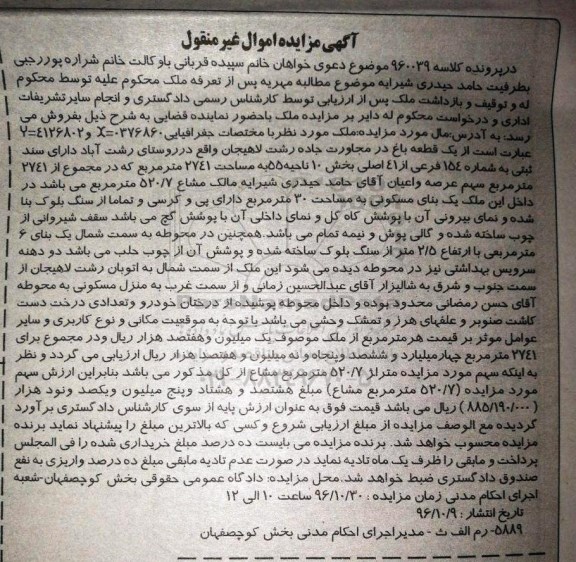 آگهی مزایده اموال غیر منقول
درپرونده کلاسه ۹۶۰۰۳۹ موضوع دعوی خواهان خانم سپیده قربانی باوکالت خانم شراره پوررجبی
بطرفیت حامد حیدری شیرایه موضوع مطالبه مهریه پس از تعرفه ملک محکوم علیه توسط محکوم
له و توقیف و بازداشت ملک پس از ارزیابی توسط کارشناس رسمی دادگستری و انجام سایر تشریفات
اداری و درخواست محکوم له دایر بر مزایده ملک باحضور نماینده قضایی به شرح ذیل بفروش می
رسد: به آدرس:مال مورد مزایده:ملک مورد نظر با مختصات جغرافیایی X=۰۳۷۶۸۶۰ و Y=۴۱۲۶۸۰۲
عبارت است از یک قطعه باغ در مجاورت جاده رشت لاهیجان واقع درروستای رشت آباد دارای سند
ثبتی به شماره ۱۵۴ فرعی از ۴۱ اصلی بخش ۱۰ ناحیه۵۵به مساحت ۲۷۴۱ مترمربع که در مجموع از ۲۷۴۱
مترمربع سهم عرصه واعیان آقای حامد حیدری شیرایه مالک مشاع ۵۲۰/۷ مترمربع می باشد در
داخل این ملک یک بنای مسکونی به مساحت ۳۰ مترمربع دارای پی و کرسی و تماما از سنگ بلوک بنا
شده و نمای بیرونی آن با پوشش کاه گل و نمای داخلی آن با پوشش گچ می باشد سقف شیروانی از
چوب ساخته شده و گالی پوش و نیمه تمام می باشد.همچنین در محوطه به سمت شمال یک بنای ۶
مترمربعی با ارتفاع ۲/۵ متر از سنگ بلوک ساخته شده و پوشش آن از چوب حلب می باشد دو دهنه
سرویس بهداشتی نیز در محوطه دیده می شود این ملک از سمت شمال به اتوبان رشت لاهیجان از
سمت جنوب و شرق به شالیزار آقای عبدالحسین زمانی و از سمت غرب به منزل مسکونی به محوطه
آقای حسن رمضانی محدود بوده و داخل محوطه پوشیده از درختان خودرو و تعدادی درخت دست
کاشت صنوبر و علفهای هرز و تمشک وحشی می باشد با توجه به موقعیت مکانی و نوع کاربری و سایر
عوامل موثر بر قیمت هر مترمربع از ملک موصوف یک میلیون و هفتصد هزار ریال ودر مجموع برای
۲۷۴۱ مترمربع چهارمیلیارد و ششصد و پنجاه و نه میلیون و هفتصد هزار ریال ارزیابی می گردد و نظر
به اینکه سهم مورد مزایده متراژ ۵۲۰/۷ مترمربع مشاع از کل مذکور می باشد بنابراین ارزش سهم
مورد مزایده (۵۲۰/۷ مترمربع مشاع) مبلغ هشتصد و هشتاد وپنج میلیون ویکصد ونود هزار
(۸۸۵/۱۹۰/۰۰۰) ریال می باشد قیمت فوق به عنوان ارزش پایه از سوی کارشناس دادگستری برآورد
گردیده مع الوصف مزایده از مبلغ ارزیابی شروع و کسی که بالاترین مبلغ را پیشنهاد نماید برنده
مزایده محسوب خواهد شد. برنده مزایده می بایست ده درصد مبلغ خریداری شده را فی المجلس
پرداخت و مابقی را ظرف یک ماه تادیه نماید در صورت عدم تادیه مابقی مبلغ ده درصد واریزی به نفع
صندوق دادگستری ضبط خواهد شد.محل مزایده: دادگاه عمومی حقوقی بخش کوچصفهان-شعبه
اجرای احکام مدنی زمان مزایده : ۹۶/۱۰/۳۰ ساعت ۱۰ الی ۱۲
تاریخ انتشار : ۹۶/۱۰/۹
۵۸۸۹- رم الف ث - مدیراجرای احکام مدنی بخش کوچصفهان